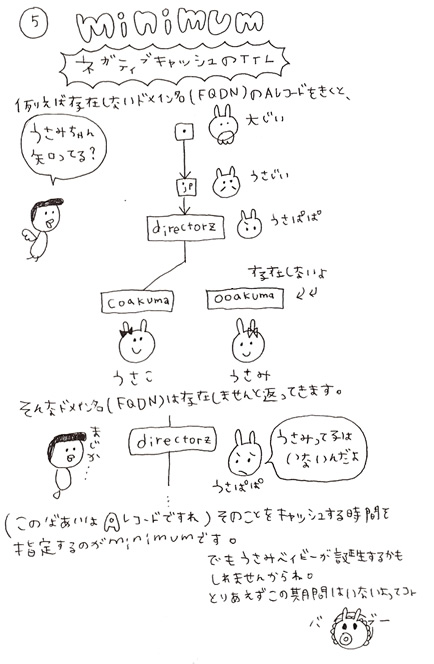 ⑤ minimum
ネガティブキャッシュのTTL
例えば存在しないドメイン名(FQDN)のAレコードをきくと、
うさみちゃん
知ってる?
.
大じい
jp
うさじい
directorz
うさぱぱ
存在しないよ
coakuma
ooakuma
うさこ
うさみ
そんなドメイン名(FQDN)は存在しませんと返ってきます。
まじか…
directorz
うさみって子は
いないんだよ
うさぱぱ
(このばあいはAレコードですね)そのことをキャッシュする時間を
指定するのがminimumです。
でもうさみベイビーが誕生するかも
しれませんからね。
とりあえずこの期間はいないよってコト
バブー